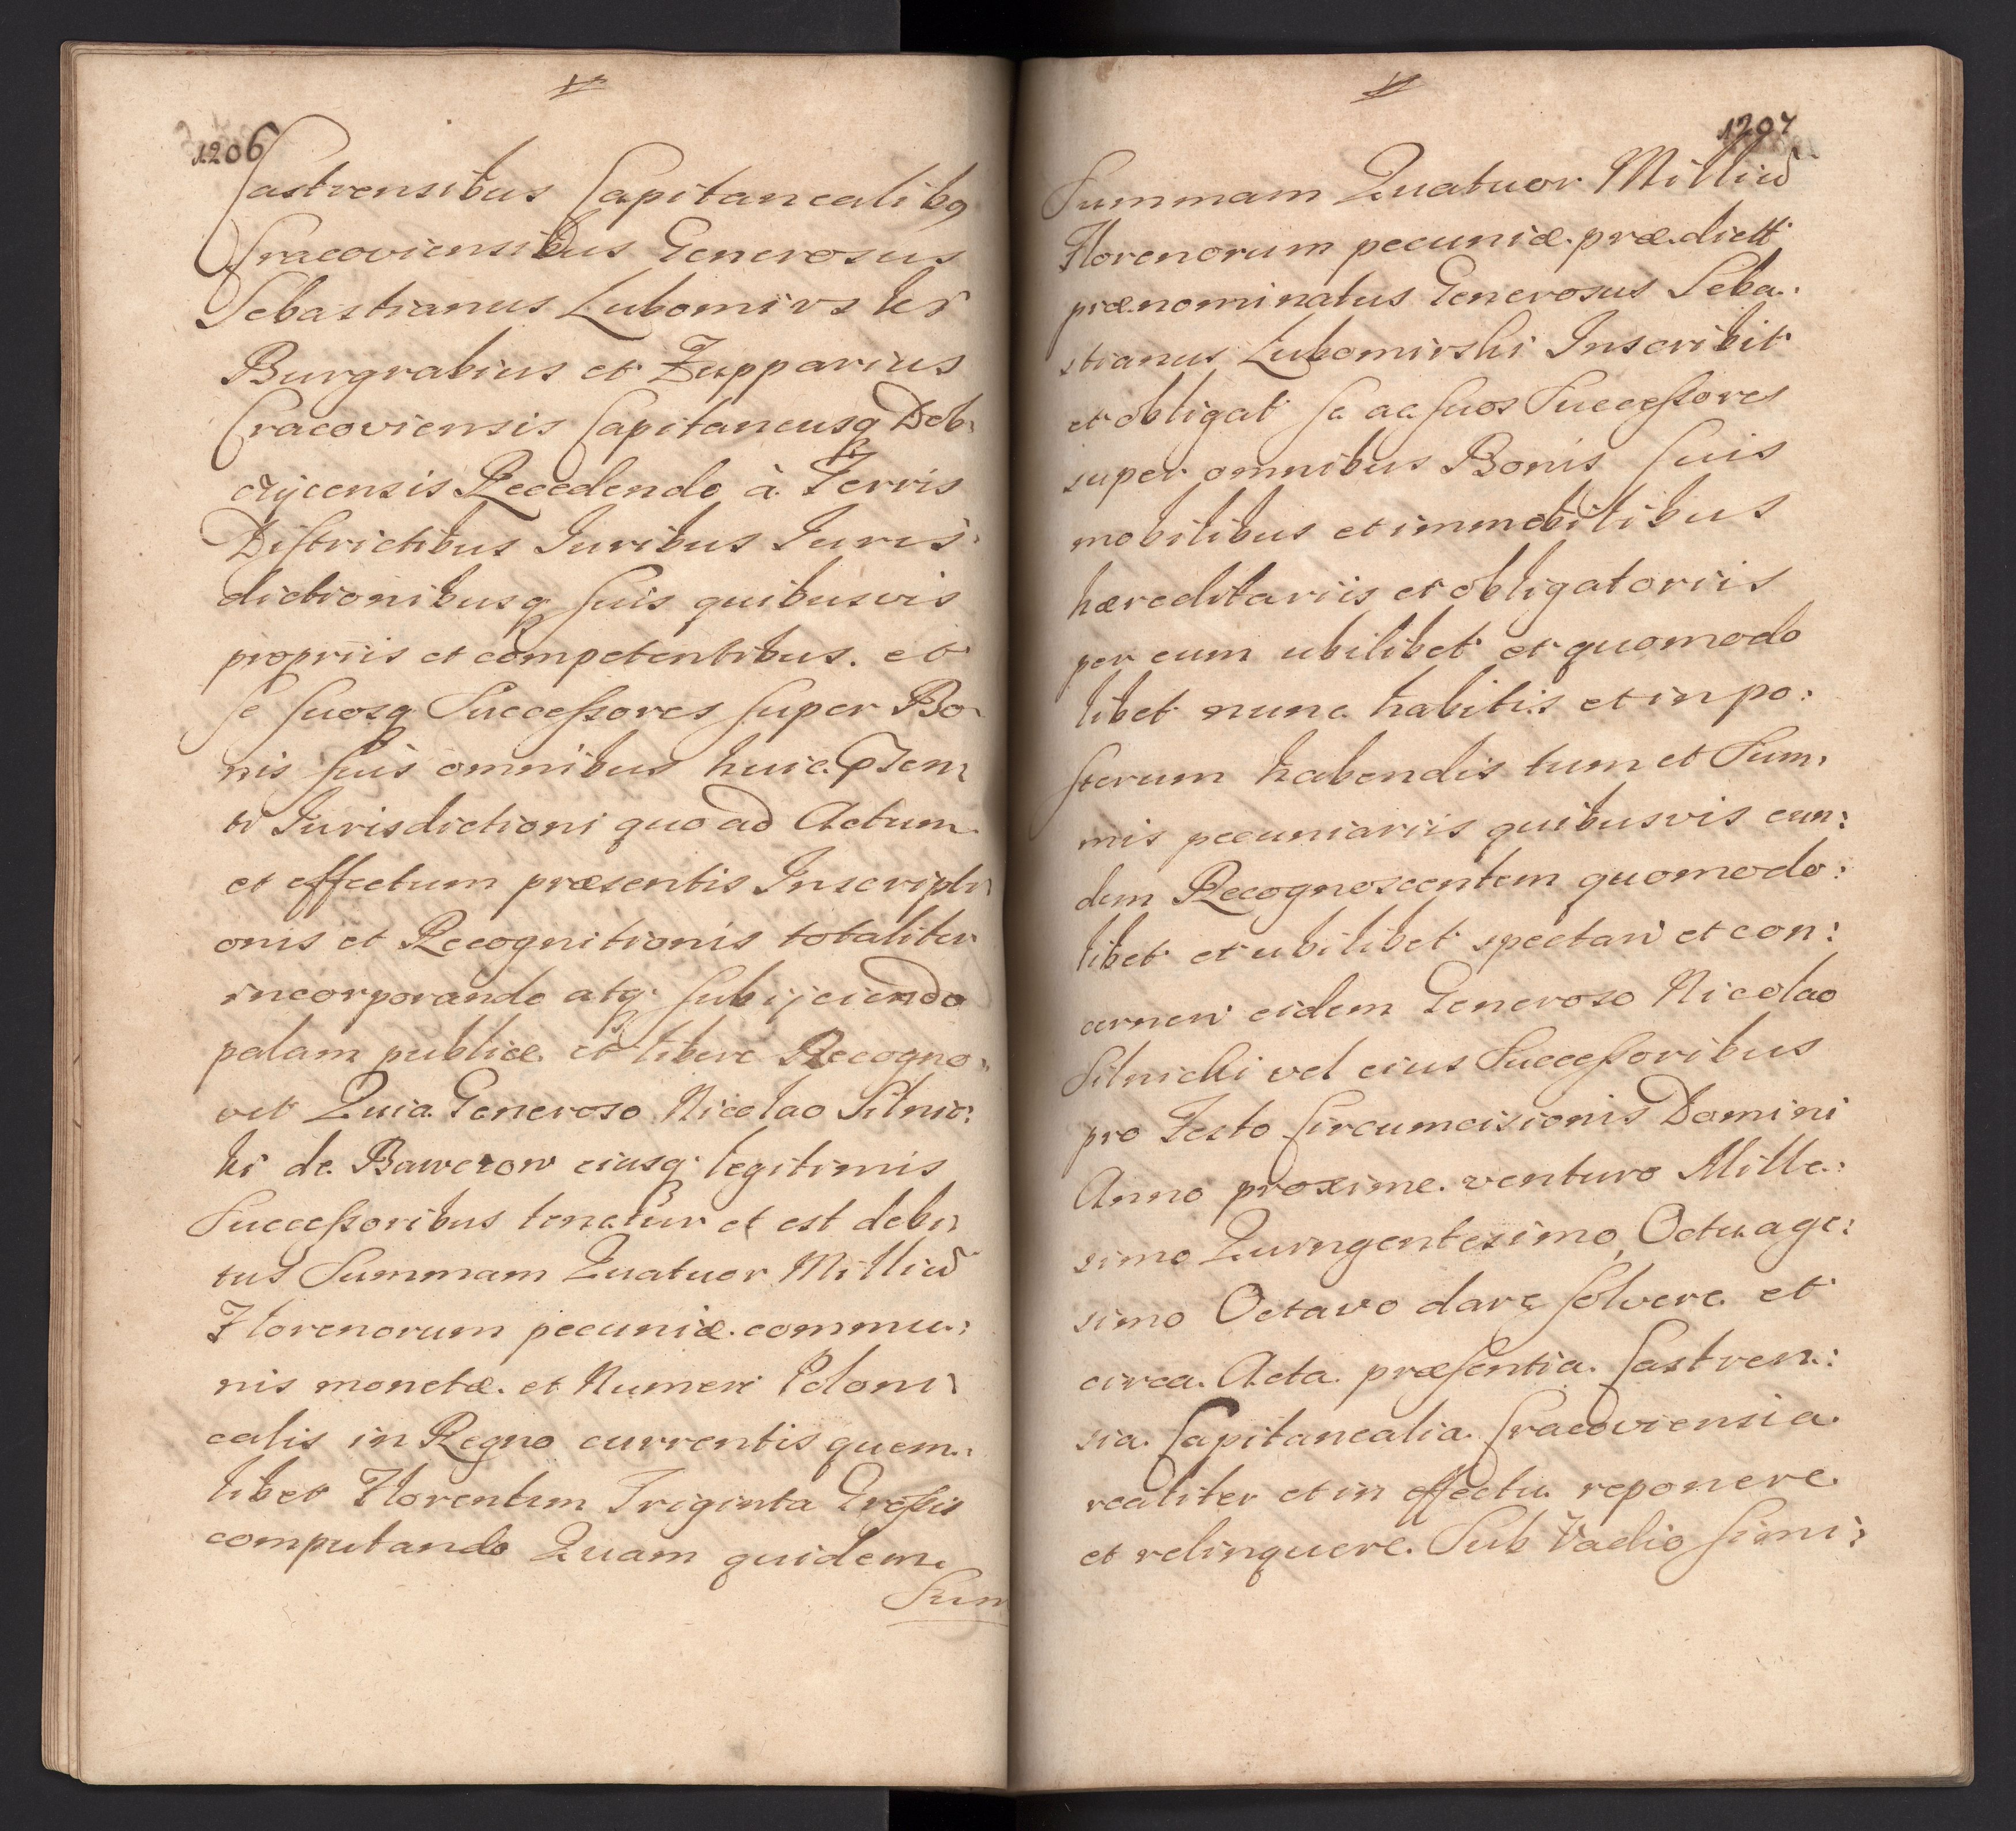 1206
Castrensibus Capitanealibq
Cracoviensibus Generosus
Sebastianus Lubomirski
Burgrabius et Zupparius
Cracoviensis Capitaneusq Dob:
czycensis Recedendo à Terris
Districtibus Iuribus Iuris:
dictionibusq suis quibusvis
propriis et competentibus. et
se suosq Successores super Bo:
nis suis omnibus huic
ti Iurisdictioni quo ad Actum
et effectum præsentis Inscripti:
onis et Recognitionis totaliter
incorporando atq subijciendo
palam publicæ et libere Recogno:
vit Quia Generoso Nicolao Silnic:
ki de Bawerow eiusq legitimis
Successoribus tenetur et est debi:
tus Summam Quatuor Milliū
Florenorum pecuniæ commu:
nis monetæ et Numeri Poloni:
calis in Regno currentis quem:
libet Florenum Triginta Grossis
computando Quam quidem
Sum
1207
Summam Quatuor Milliū
Florenorum pecuniæ præ.dictt
præ.nominatus Generosus Seba:
stianus Lubomirski Inscribit
et obligat se ac suos Successores
super omnibus Bonis suis
mobilibus et immobilibus
hæreditariis et obligatoriis
per eum ubilibet et quomodo
libet nunc habitis et in po:
sterum habendis tum et Sum:
mis pecuniariis quibusvis eun:
dem Recognoscentem quomodo:
libet et ubilibet spectari et con:
cerneri eidem Generoso Nicolao
Silnicki vel eius Successoribus
pro Festo Circumcisionis Domini
Anno proxime venturo Mille:
simo Quingentesimo Octuage:
simo Octavo dare solvere et
circa Acta præsentia Castren:
sia Capitanealia Cracoviensia
realiter et in effectu reponere
et relinquere. Sub Vadio simi: